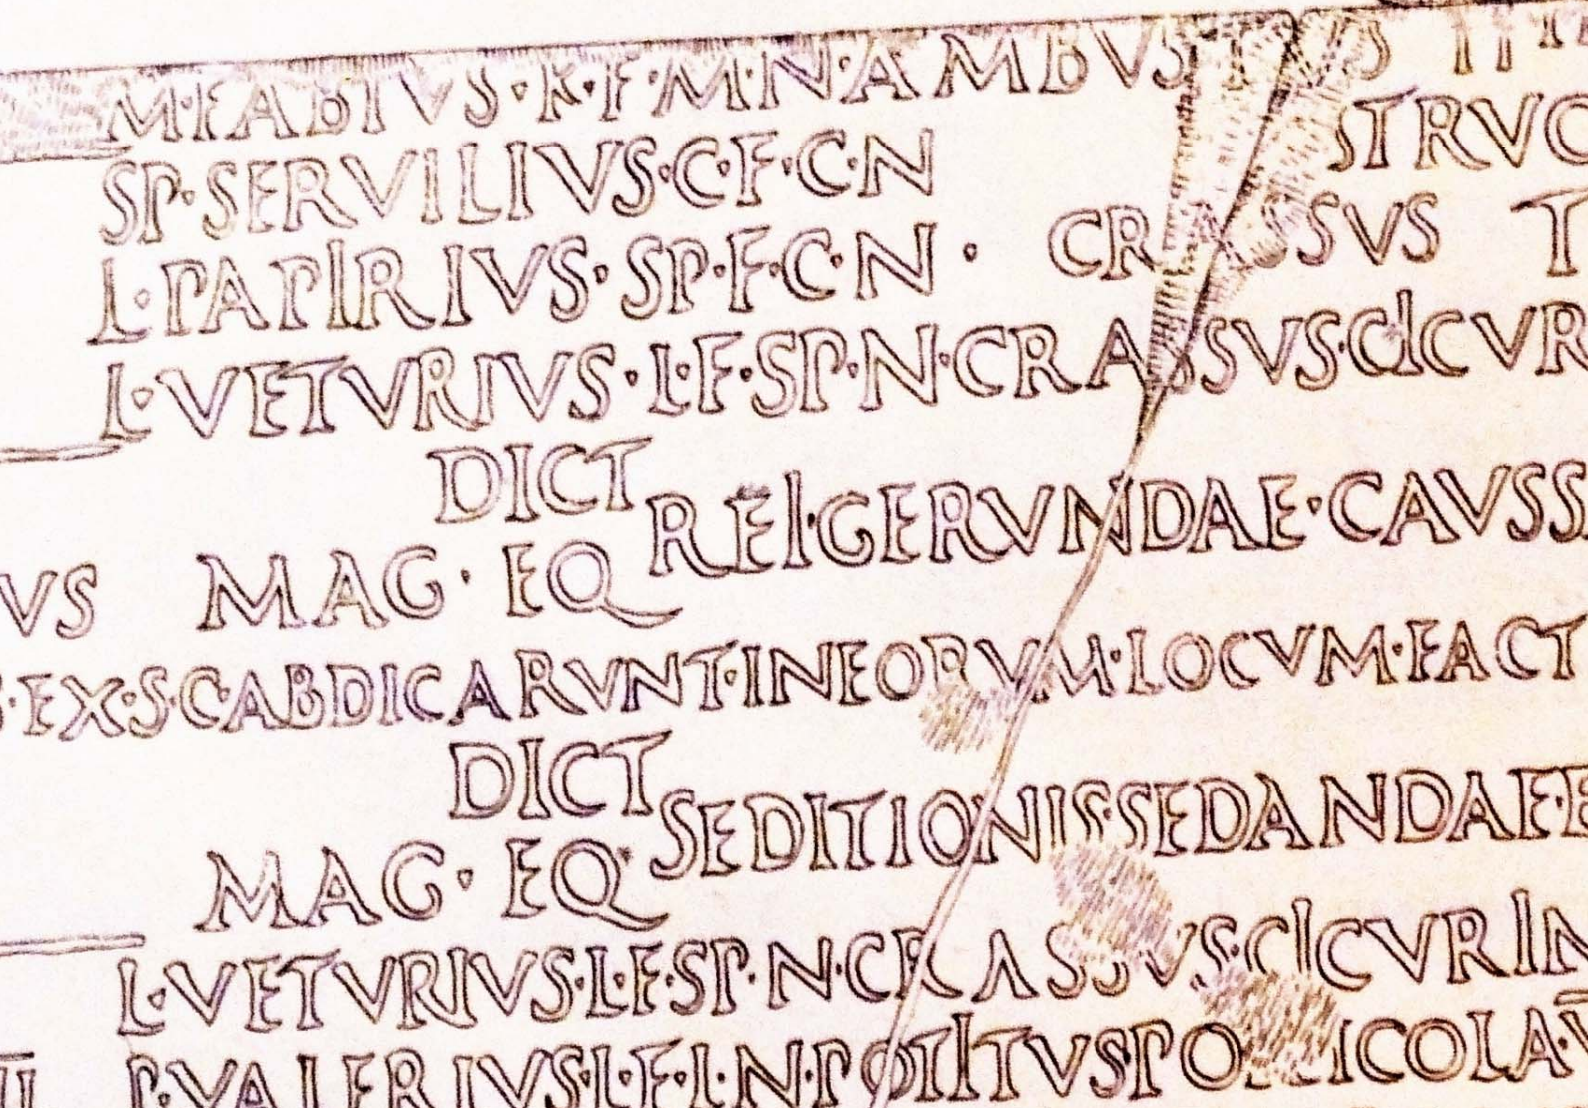 M·FABIVS·K·F·M·N·AMBVS
SP·SERVILIVS·C·F·C·N STRVC
L·PAPIRIVS·SP·F·C·N· CR SSVS T
L·VETVRIVS·L·F·SP·N·CRASSVS·CICVR
DICT
REI·GERVNDAE·CAVSSA
VS MAG·EQ
S·EX·S·C·ABDICARVNT·INEORVM·LOCVM·FACT
DICT
SEDITIONIS·SEDANDAE·E
MAG·EQ
L·VETVRIVS·L·F·SP·N·CRASSVS·CICVRIN
P·VALERIVS·L·F·L·N·POTITVS POPLICOLA·V